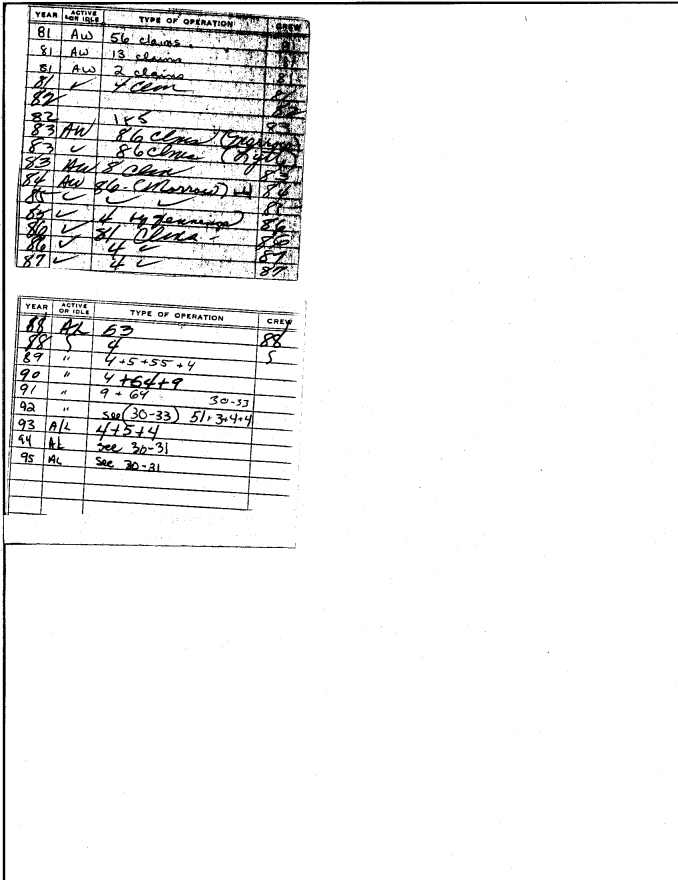 YEAR ACTIVE OR IDLE TYPE OF OPERATION CREW
81 AW 56 claims 81
81 AW 13 claims 81
81 AW 2 claims 81
81 ✓ 4 Clem 81
82 82
82 1+5
83 AW 86 Clms (Morrow) 83
83 ✓ 86 Clms
83 AW 8 Clem 83
84 AW 86 - (Morrow) +4 84
85 ✓ ✓ ✓ 85
85 ✓ 4 by Jennings
86 ✓ 81 Clms - 86
86 ✓ 4 ✓ 86
87 ✓ 4 ✓ 87
87
YEAR ACTIVE OR IDLE TYPE OF OPERATION CREW
88 AL 53 88
88 4
89 " 4+5+55+4
90 " 4+64+9
91 " 9+64 30-33
92 " see (30-33) 51+3+4+4
93 A/L 4+5+4
94 AL see 30-31
95 AL See 30-31